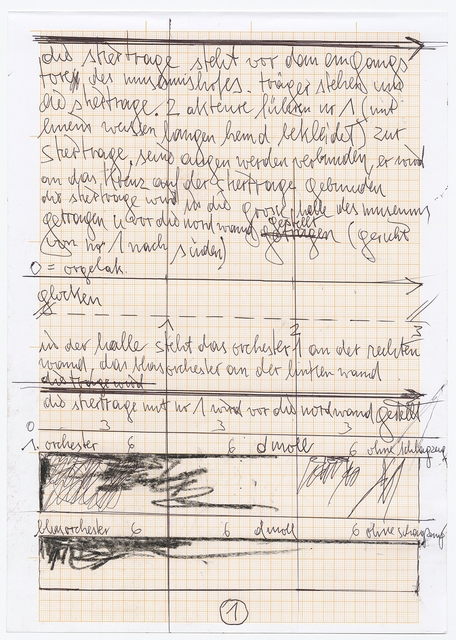 die stiertrage steht vor dem eingangs
tores des museumshofes. träger stehen um
die stiertrage. 2 akteure führen nr 1 (mit
einem weissen langen hemd bekleidet) zur
stiertrage, seine augen werden verbunden, er wird
an das kreuz auf der stiertrage gebunden
die stiertrage wird in die grosse halle des museums
getragen u vor die nordwand gestellt getragen (gesicht
von nr 1 nach süden)
0 = orgelakk.
glocken
1 2 3
in der halle steht das orchester 1 an der rechten
wand, das blasorchester an der linken wand
die trage wird
die stiertrage mit nr 1 wird vor die nordwand gestellt
0 3 3 3
1. orchester 6 6 d moll 6 ohne schlagzeug
blasorchester 6 6 d moll 6 ohne schlagzeug
1